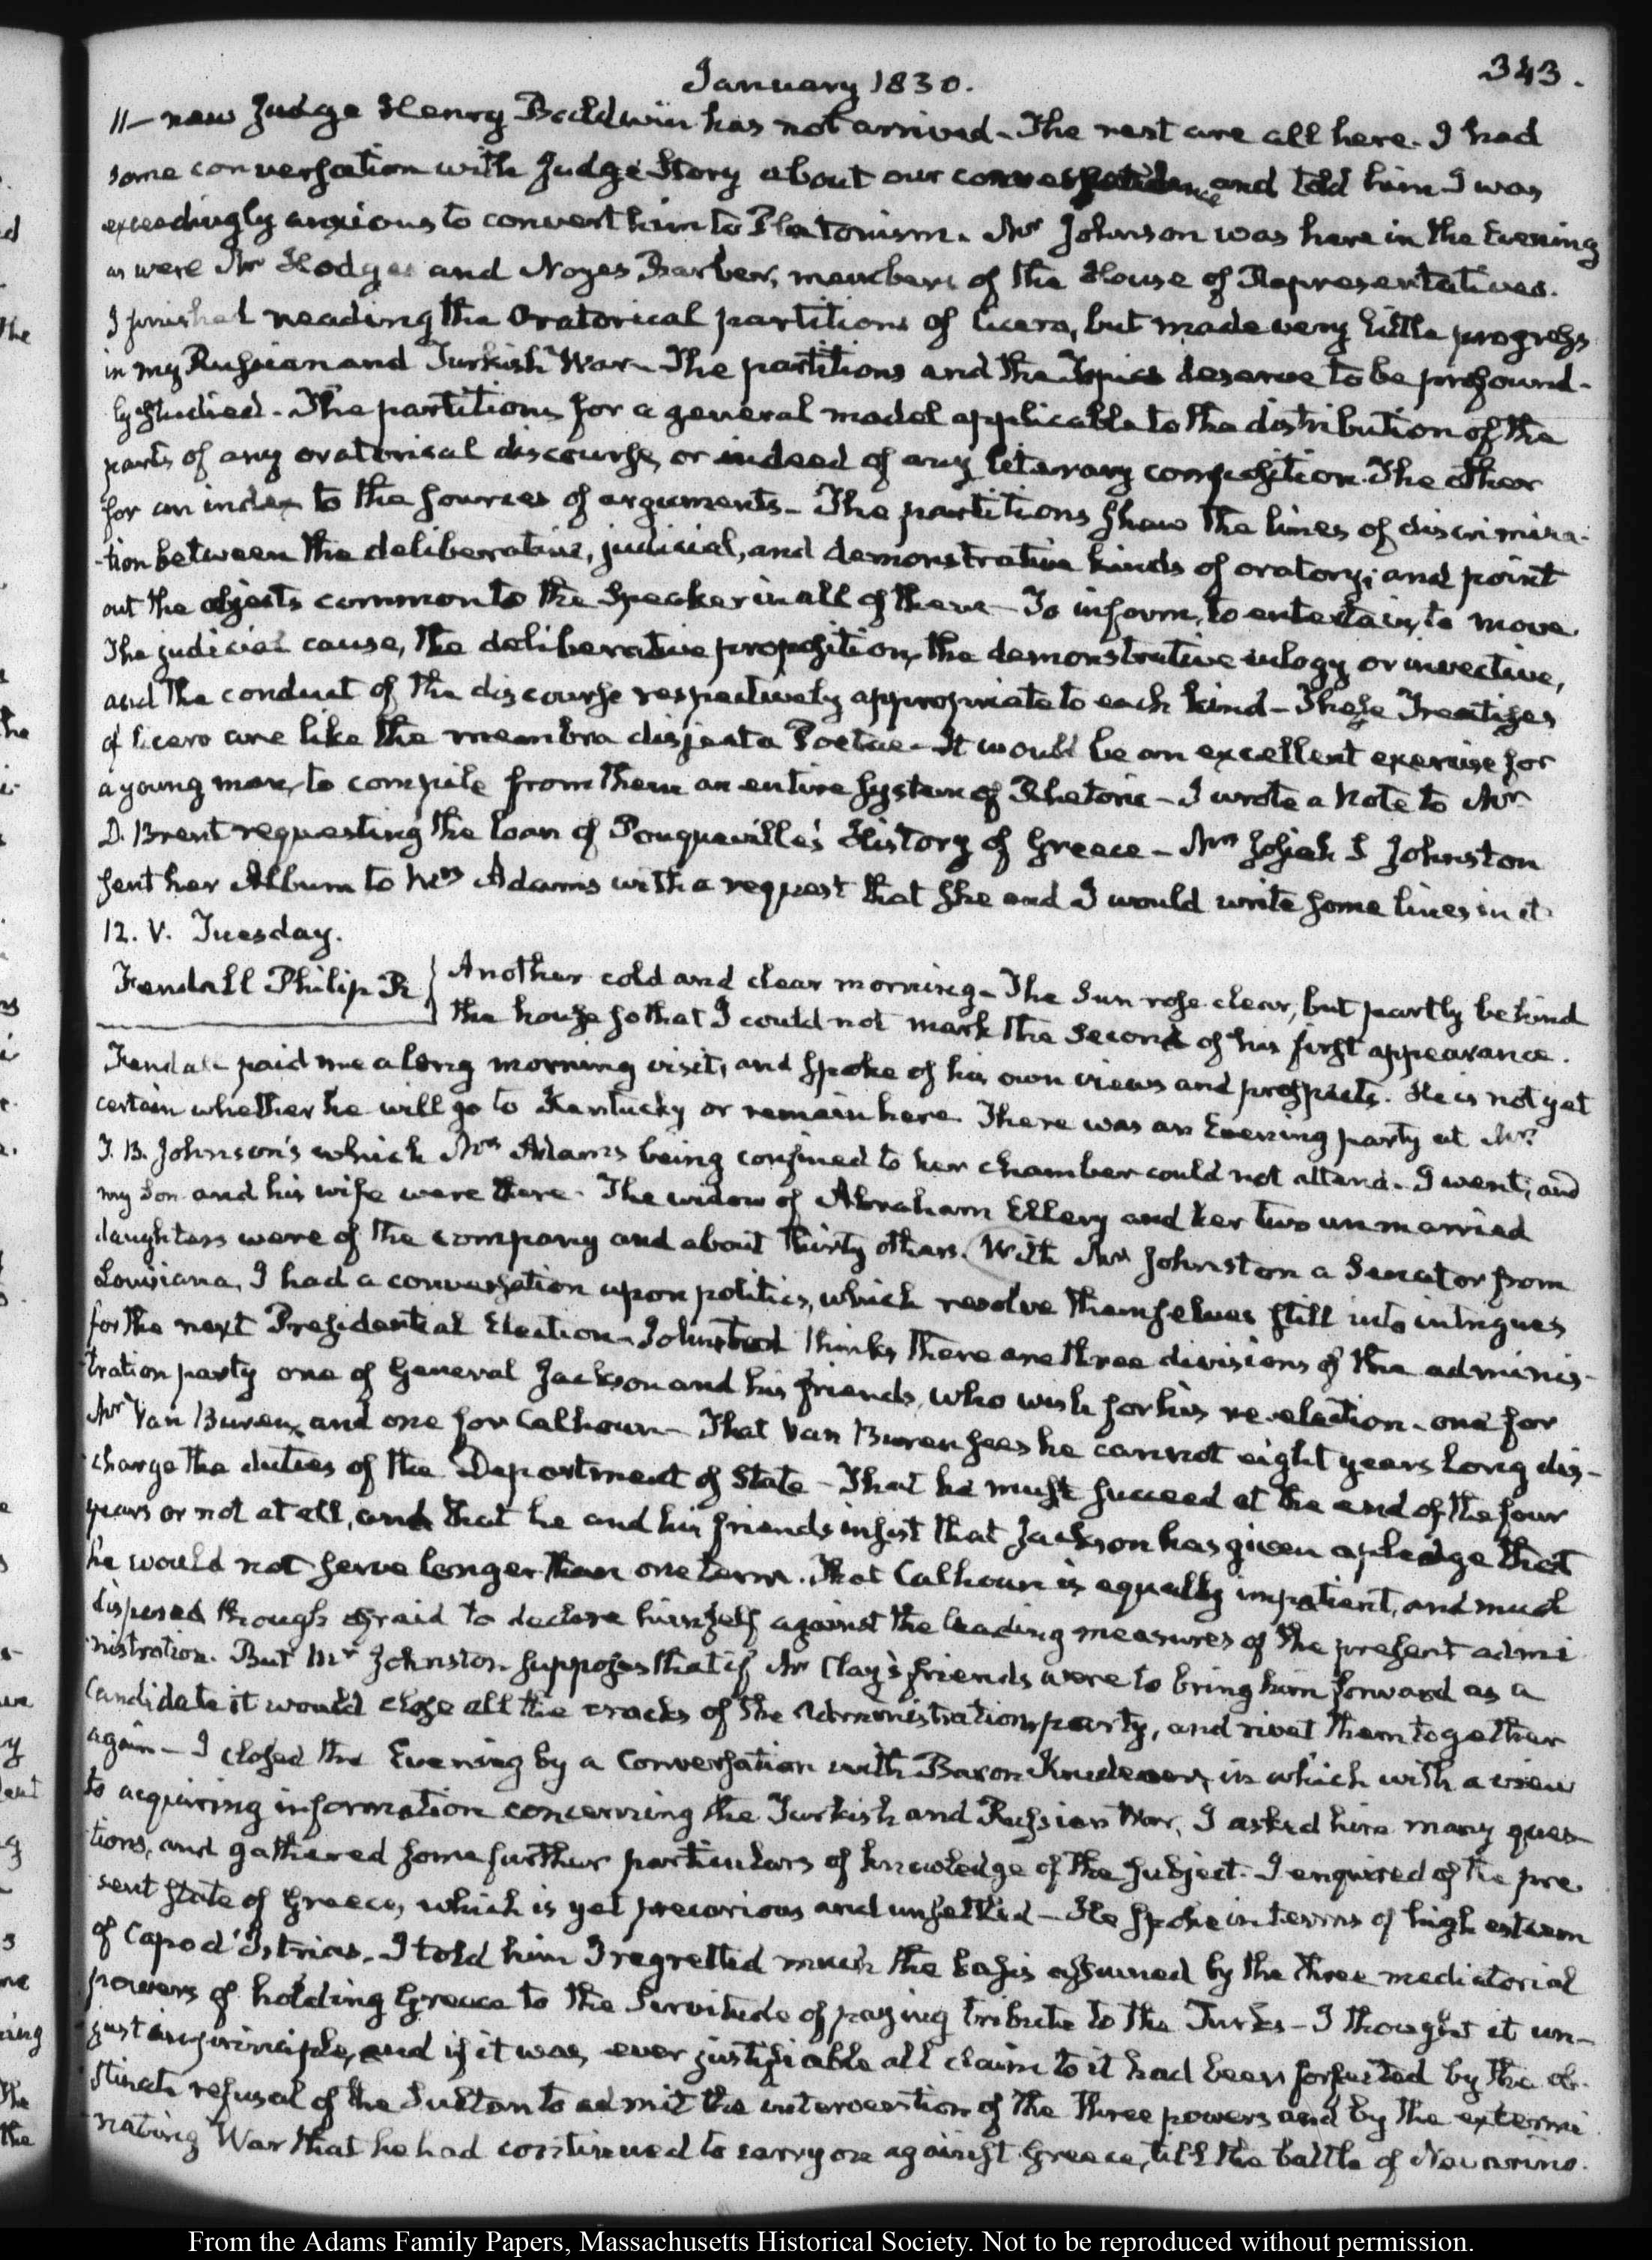 January 1830.
343.
11— new Judge Henry Baldwin has not arrived— The rest are all here. I had
some conversation with Judge Story about our correspondence and told him I was
exceedingly anxious to convert him to Platonism. Mr Johnson was here in the Evening
as were Mr Hodges and Noyes Barber, members of the House of Representatives.
I finished reading the Oratorical partitions of Cicero, but made very little progress
in my Russian and Turkish War— The partitions and the Topics deserve to be profound-
ly studied— The partitions for a general model applicable to the distribution of the
parts of any oratorical discourse, or indeed of any literary composition. The other
for an index to the sources of arguments— The partitions show the lines of discrimina-
-tion between the deliberative, judicial, and demonstrative kinds of oratory; and point
out the objects common to the Speaker in all of them— To inform, to entertain, to move
The judicial cause, the deliberative proposition, the demonstrative eulogy or invective,
and the conduct of the discourse respectively appropriate to each kind— These Treatises
of Cicero are like the membra disjecta Poetae— It would be an excellent exercise for
a young man, to compile from them an entire system of Rhetoric— I wrote a Note to Mr
D. Brent requesting the loan of Pouqueville's History of Greece— Mrs Josiah S Johnston
sent her Album to Mrs Adams with a request that she and I would write some lines in it
12. V. Tuesday.
Fendall Philip R } Another cold and clear morning— The Sun rose clear, but partly behind
the house so that I could not mark the second of his first appearance.
Fendall paid me a long morning visit, and spoke of his own views and prospects. He is not yet
certain whether he will go to Kentucky or remain here. There was an Evening party at Mr
T. B. Johnson's which Mrs Adams being confined to her chamber could not attend. I went; and
my Son and his wife were there. The widow of Abraham Ellery and her two unmarried
daughters were of the company and about thirty others. With Mr Johnston a Senator from
Louisiana, I had a conversation upon politics, which resolve themselves still into intrigues
for the next Presidential Election— Johnston thinks there are three divisions of the adminis-
tration party one of General Jackson and his friends, who wish for his re-election— one for
Mr Van Buren, and one for Calhoun— That Van Buren sees he cannot eight years long dis-
charge the duties of the Department of State— That he must succeed at the end of the four
years or not at all, and that he and his friends insist that Jackson has given a pledge that
he would not serve longer than one term. That Calhoun is equally impatient, and much
disposed though afraid to declare himself against the leading measures of the present admi
nistration. But Mr Johnston supposes that if Mr Clay's friends were to bring him forward as a
Candidate it would close all the cracks of the Administration party, and rivet them together
again— I closed the Evening by a Conversation with Baron Krudener, in which with a view
to acquiring information concerning the Turkish and Russian War, I asked him many ques-
tions, and gathered some further particulars of knowledge of the subject. I enquired of the pre
sent state of Greece, which is yet precarious and unsettled— He spoke in terms of high esteem
of Capo d'Istrias. I told him I regretted much the basis assumed by the three mediatorial
powers of holding Greece to the servitude of paying tribute to the Turks— I thought it un-
just in principle, and if it was ever justifiable all claim to it had been forfeited by the ob-
stinate refusal of the Sultan to admit the intervention of the three powers and by the extermi
nating War that he had continued to carry on against Greece, till the battle of Navarino.
From the Adams Family Papers, Massachusetts Historical Society. Not to be reproduced without permission.